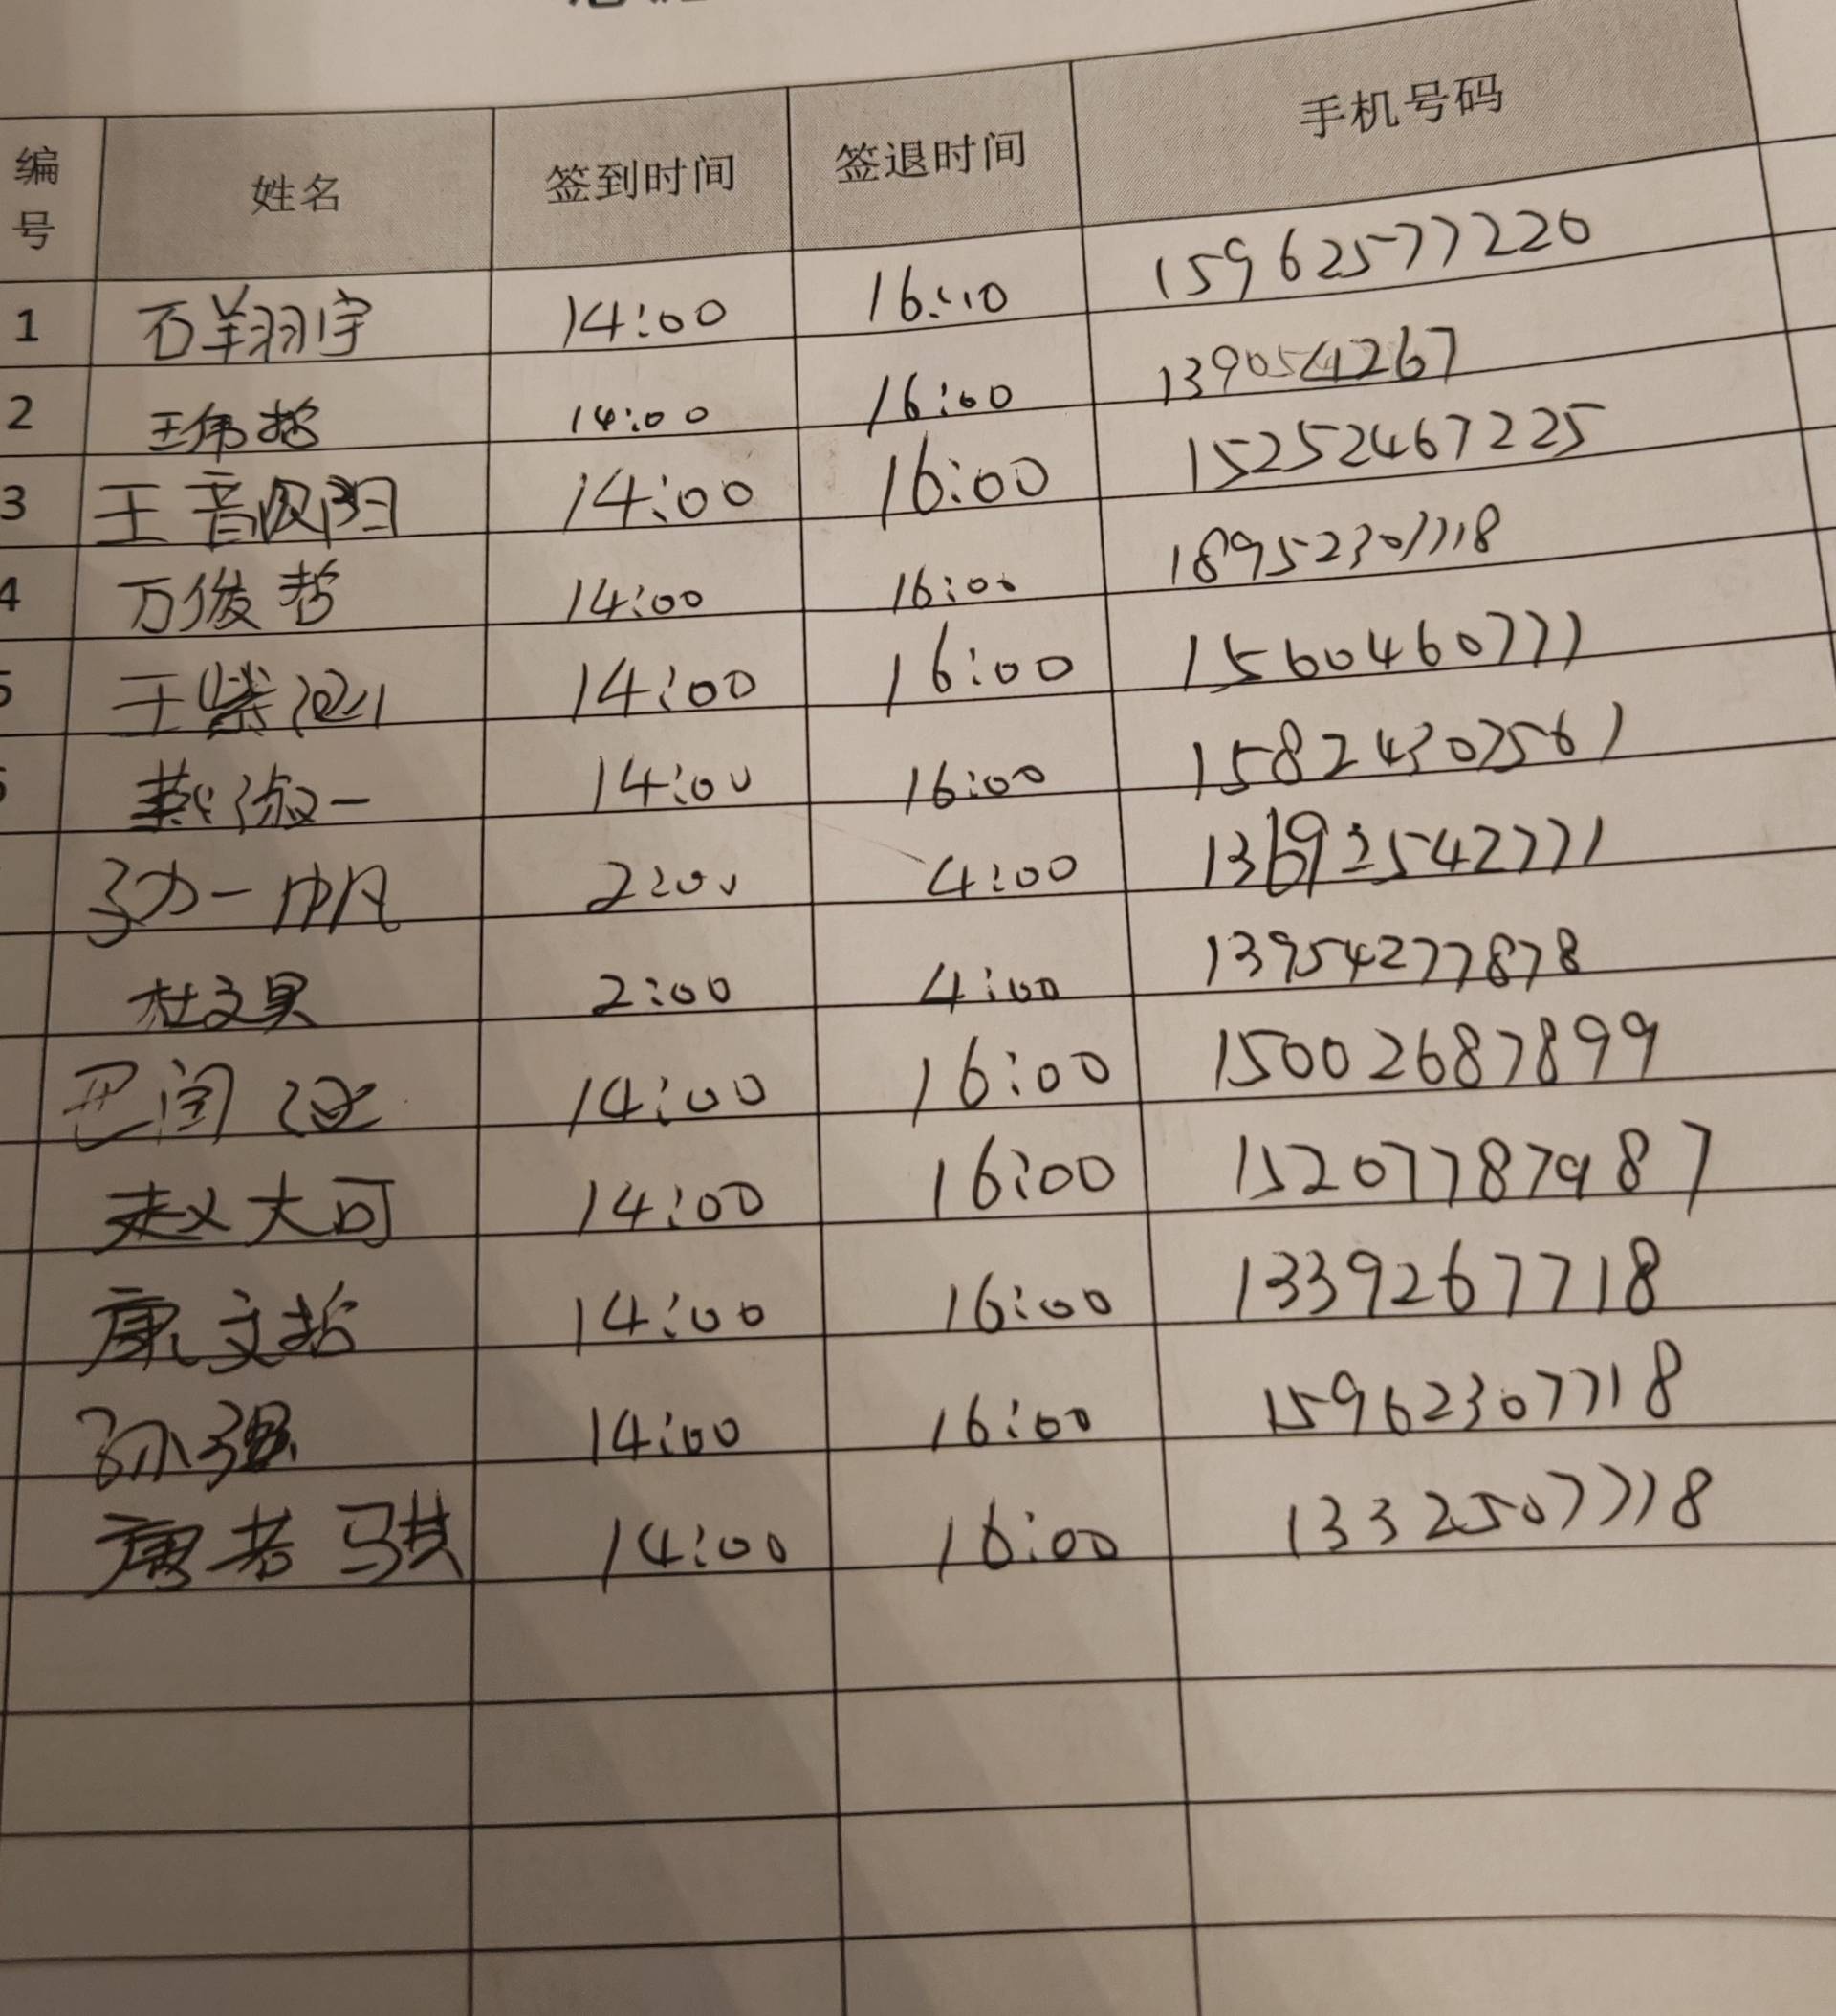 编号 姓名 签到时间 签退时间 手机号码
1 石翔宇 14:00 16:00 15962577220
2 王伟哲 14:00 16:00 1390544267
3 王 14:00 16:00 15252467225
4 万俊哲 14:00 16:00 18952307718
5 王紫涵 14:00 16:00 1560460777
6 燕淑一 14:00 16:00 15824307567
孙一帆 2:00 4:00 13692542771
杜文昊 2:00 4:00 13954277878
巴闰 14:00 16:00 15002687899
赵大可 14:00 16:00 15207787987
康文哲 14:00 16:00 1339267718
孙强 14:00 16:00 15962307718
唐若骐 14:00 16:00 13325077718